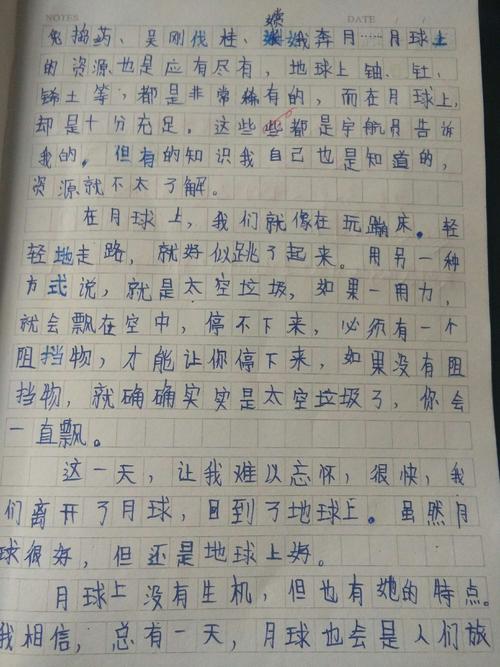 NOTES DATE / /
嫦
兔捣药、吴刚伐桂、娥奔月……月球上
的资源也是应有尽有，地球上铀、钍、
稀土等，都是非常稀有的，而在月球上，
却是十分充足。这些些都是宇航员告诉
我的。但有的知识我自己也是知道的，
资源就不太了解。
在月球上，我们就像在玩蹦床。轻
轻地走路，就好似跳了起来。用另一种
方式说，就是太空垃圾，如果一用力，
就会飘在空中，停不下来，必须有一个
阻挡物，才能让你停下来，如果没有阻
挡物，就确确实实是太空垃圾了，你会
一直飘。
这一天，让我难以忘怀，很快，我
们离开了月球，回到了地球上。虽然月
球很好，但还是地球上好。
月球上没有生机，但也有她的特点。
我相信，总有一天，月球也会是人们旅